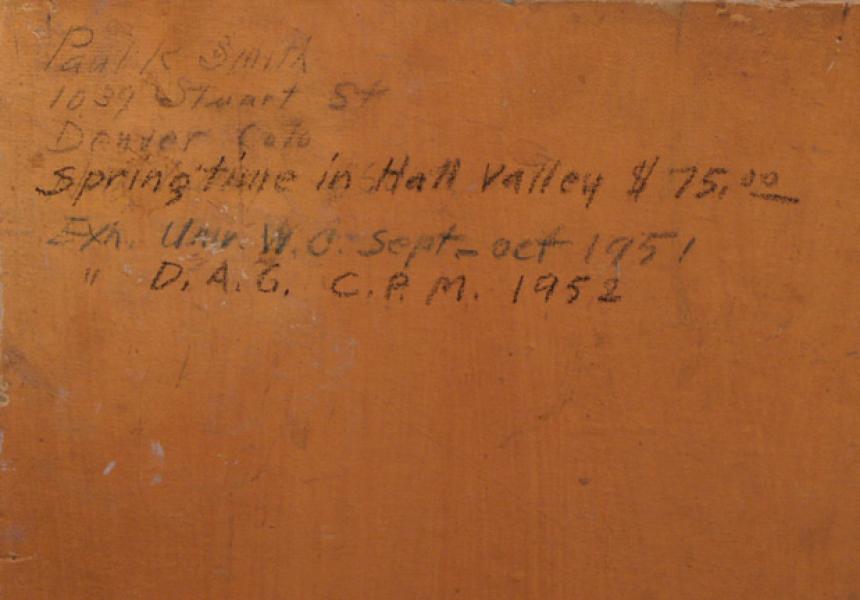 Paul K Smith
1039 Stuart St
Denver Colo
Springtime in Hall Valley $ 75.00
Exh. Univ. W.C. Sept - oct 1951
" D.A.G. C.P.M. 1952